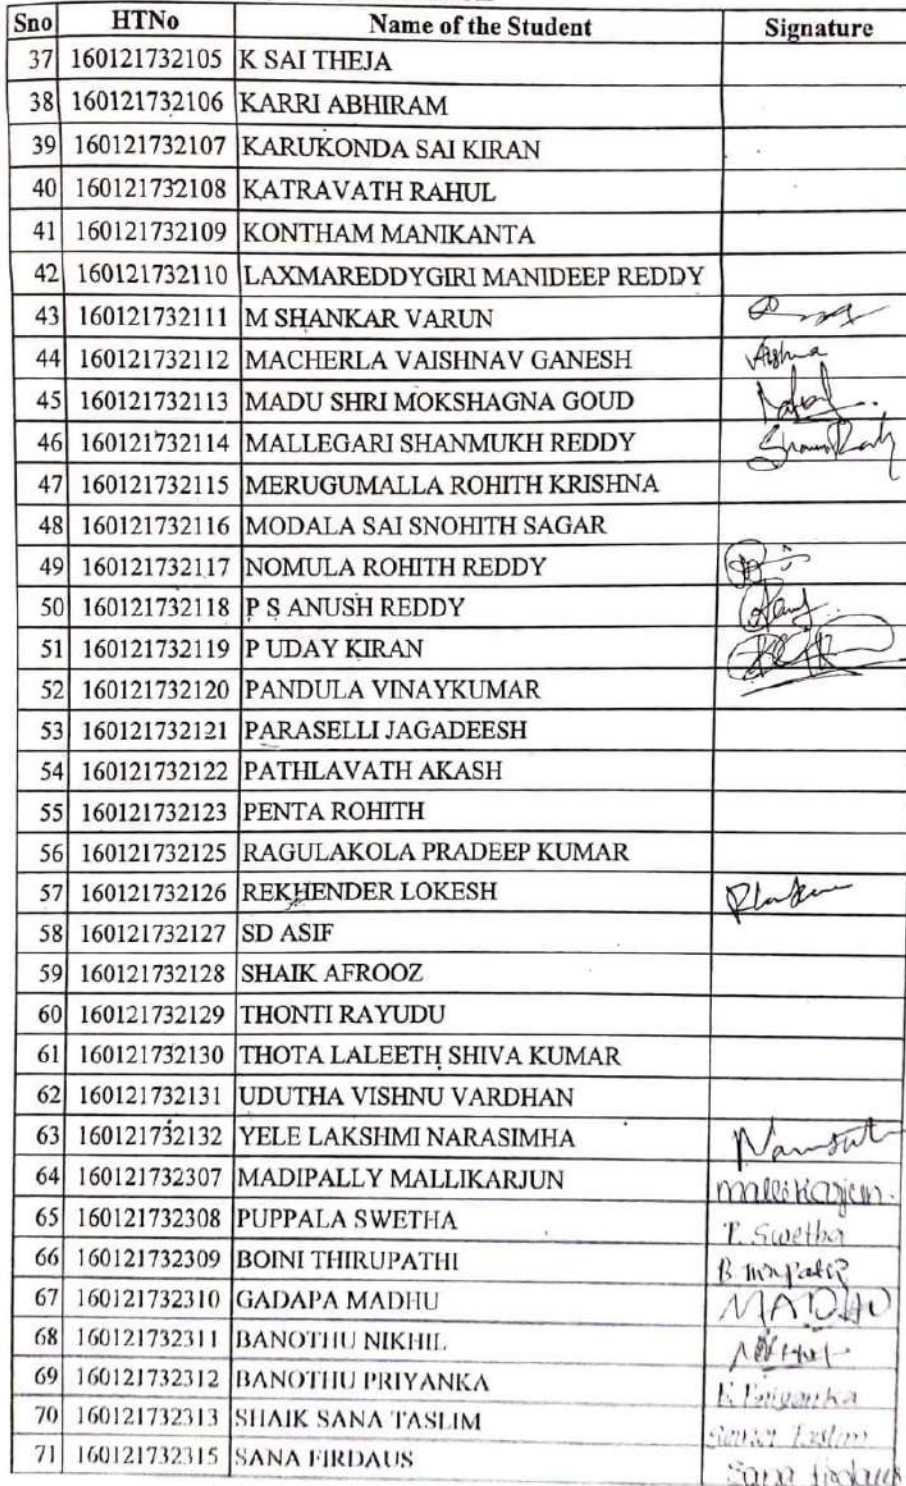 Sno HTNo Name of the Student Signature
37 160121732105 K SAI THEJA
38 160121732106 KARRI ABHIRAM
39 160121732107 KARUKONDA SAI KIRAN
40 160121732108 KATRAVATH RAHUL
41 160121732109 KONTHAM MANIKANTA
42 160121732110 LAXMAREDDYGIRI MANIDEEP REDDY
43 160121732111 M SHANKAR VARUN
44 160121732112 MACHERLA VAISHNAV GANESH
45 160121732113 MADU SHRI MOKSHAGNA GOUD
46 160121732114 MALLEGARI SHANMUKH REDDY
47 160121732115 MERUGUMALLA ROHITH KRISHNA
48 160121732116 MODALA SAI SNOHITH SAGAR
49 160121732117 NOMULA ROHITH REDDY
50 160121732118 P S ANUSH REDDY
51 160121732119 P UDAY KIRAN
52 160121732120 PANDULA VINAYKUMAR
53 160121732121 PARASELLI JAGADEESH
54 160121732122 PATHLAVATH AKASH
55 160121732123 PENTA ROHITH
56 160121732125 RAGULAKOLA PRADEEP KUMAR
57 160121732126 REKHENDER LOKESH
58 160121732127 SD ASIF
59 160121732128 SHAIK AFROOZ
60 160121732129 THONTI RAYUDU
61 160121732130 THOTA LALEETH SHIVA KUMAR
62 160121732131 UDUTHA VISHNU VARDHAN
63 160121732132 YELE LAKSHMI NARASIMHA
64 160121732307 MADIPALLY MALLIKARJUN Mallikarjun.
65 160121732308 PUPPALA SWETHA P. Swetha
66 160121732309 BOINI THIRUPATHI
67 160121732310 GADAPA MADHU MADHU
68 160121732311 BANOTHU NIKHIL
69 160121732312 BANOTHU PRIYANKA B. Priyanka
70 160121732313 SHAIK SANA TASLIM
71 160121732315 SANA FIRDAUS Sana firdaus